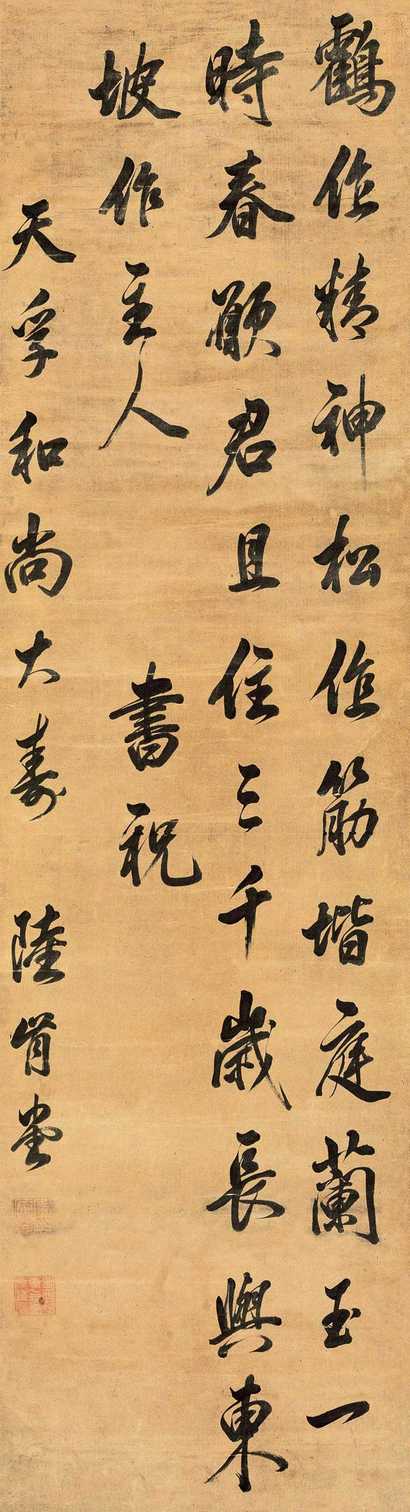 鸖作精神松作筋堦庭蘭玉一
時春願君且住三千歲長與東
坡作主人
書祝
天孚和尚大壽
陸肯堂